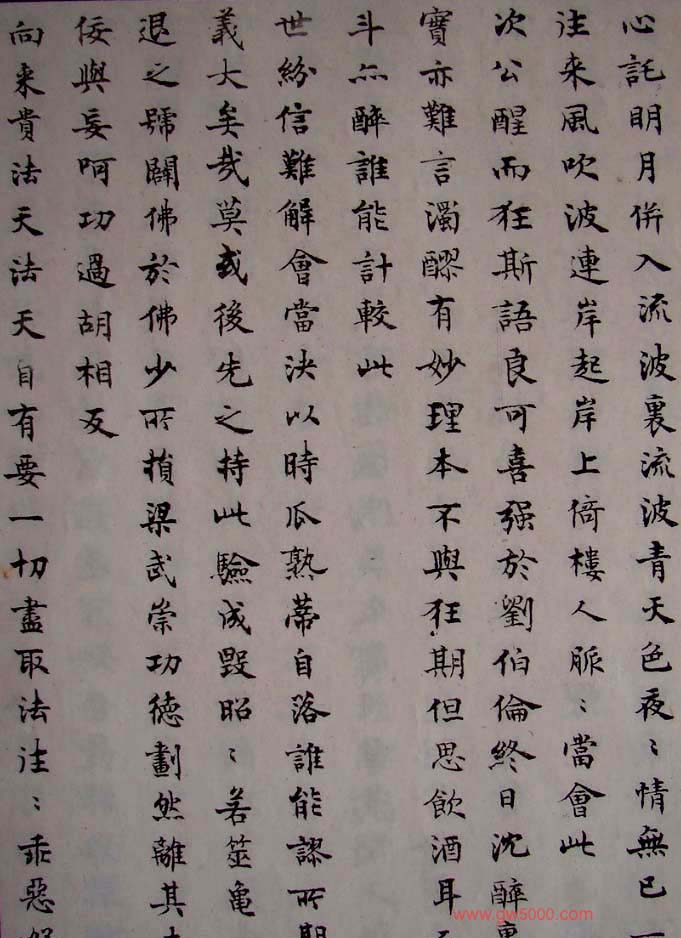 心託明月併入流波裏流波青天色夜〻情無已
注来風吹波連岸起岸上倚樓人脈〻當會此
次公醒而狂斯語良可喜强於劉伯倫終日沈醉裏
寶亦難言濁醪有妙理本不與狂期但思飲酒耳
斗亦醉誰能計較此
世紛信難解會當決以時瓜熟蒂自落誰能謬所期
義大矣哉莫或後先之持此驗成毀昭〻若筮亀
退之號闢佛於佛少所損梁武崇功德劃然離其
佞與妄呵功過胡相反
向来貴法天法天自有要一切盡取法注〻乖惡
www.gw5000.com